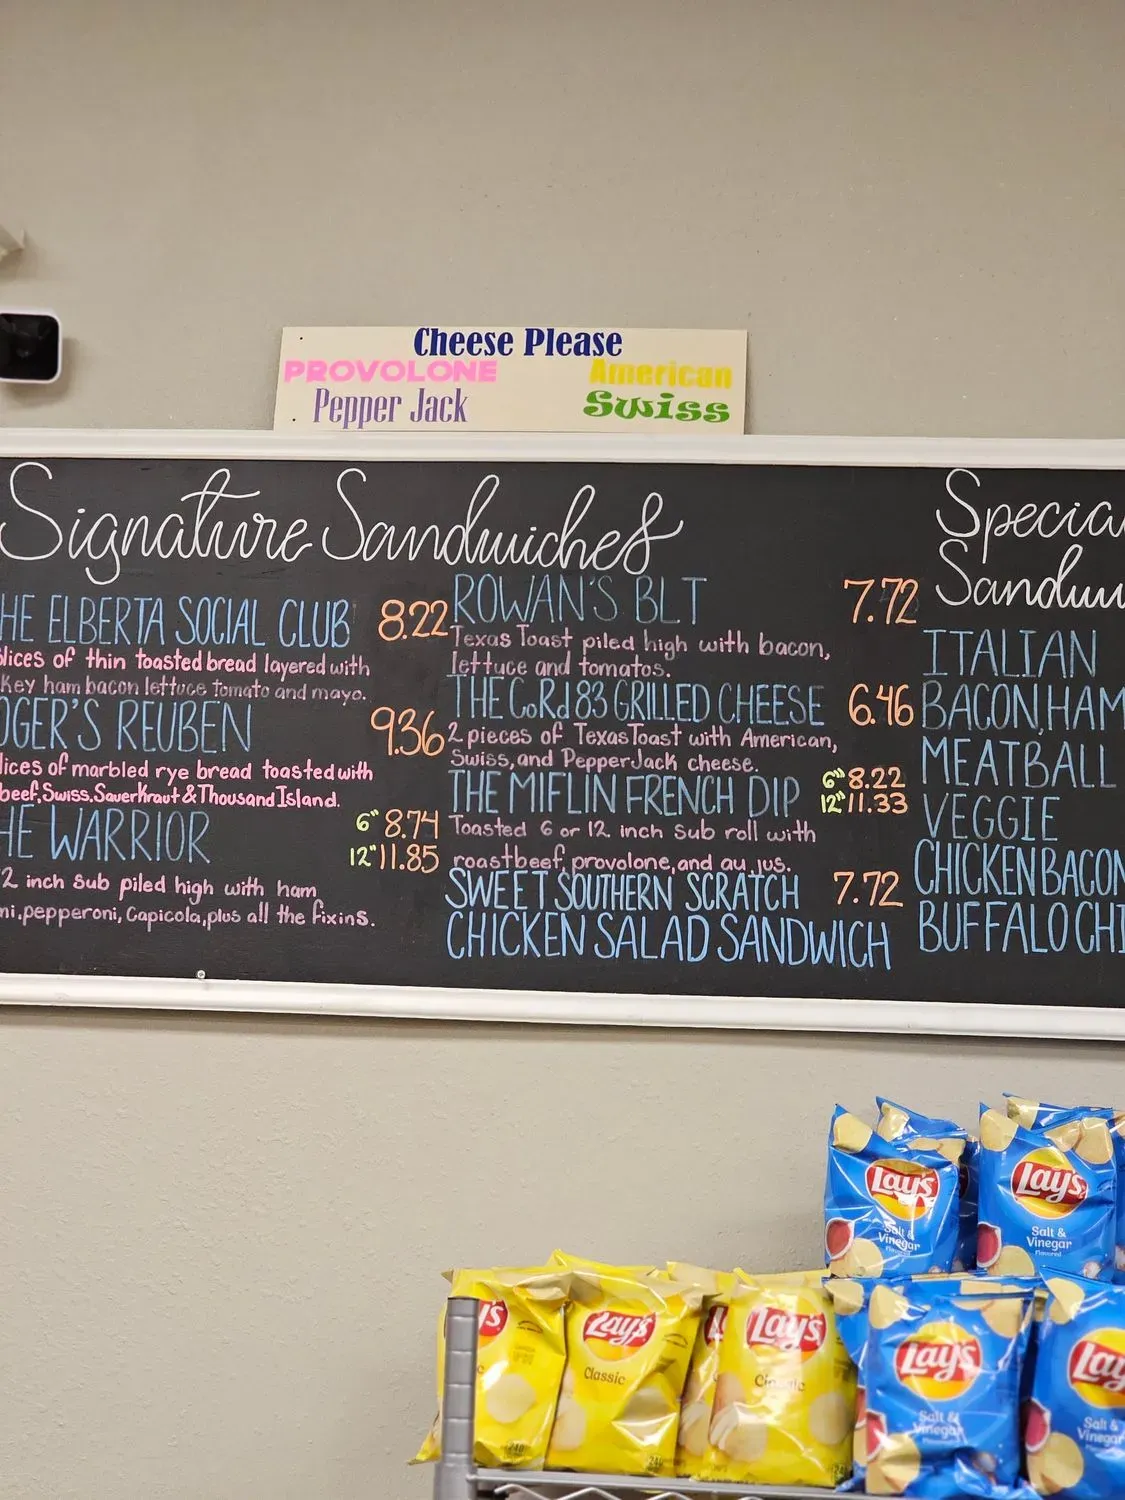 Cheese Please
PROVOLONE American
Pepper Jack Swiss
Signature Sandwiches
HE ELBERTA SOCIAL CLUB 8.22
lices of thin toasted bread layered with
key ham bacon lettuce tomato and mayo.
OGER'S REUBEN 9.36
lices of marbled rye bread toasted with
beef, Swiss, Sauerkraut & Thousand Island.
HE WARRIOR 6" 8.74
12" 11.85
2 inch Sub piled high with ham
ni, pepperoni, Capicola, plus all the fixins.
ROWAN'S BLT 7.72
Texas Toast piled high with bacon,
lettuce and tomatos.
THE CoRd 83 GRILLED CHEESE 6.46
2 pieces of Texas Toast with American,
Swiss, and Pepper Jack cheese.
THE MIFLIN FRENCH DIP 6" 8.22
12" 11.33
Toasted 6 or 12 inch sub roll with
roastbeef, provolone, and au jus.
SWEET SOUTHERN SCRATCH 7.72
CHICKEN SALAD SANDWICH
Specia
Sandw
ITALIAN
BACON, HAM
MEATBALL
VEGGIE
CHICKEN BACON
BUFFALO CHI
Lay's
Salt &
Vinegar
Flavored
Lay's
Salt &
Vinegar
Flavored
Lay's
Classic
Lay's
Classic
Lay's
Salt &
Vinegar
Lay
Salt &
Vinegar